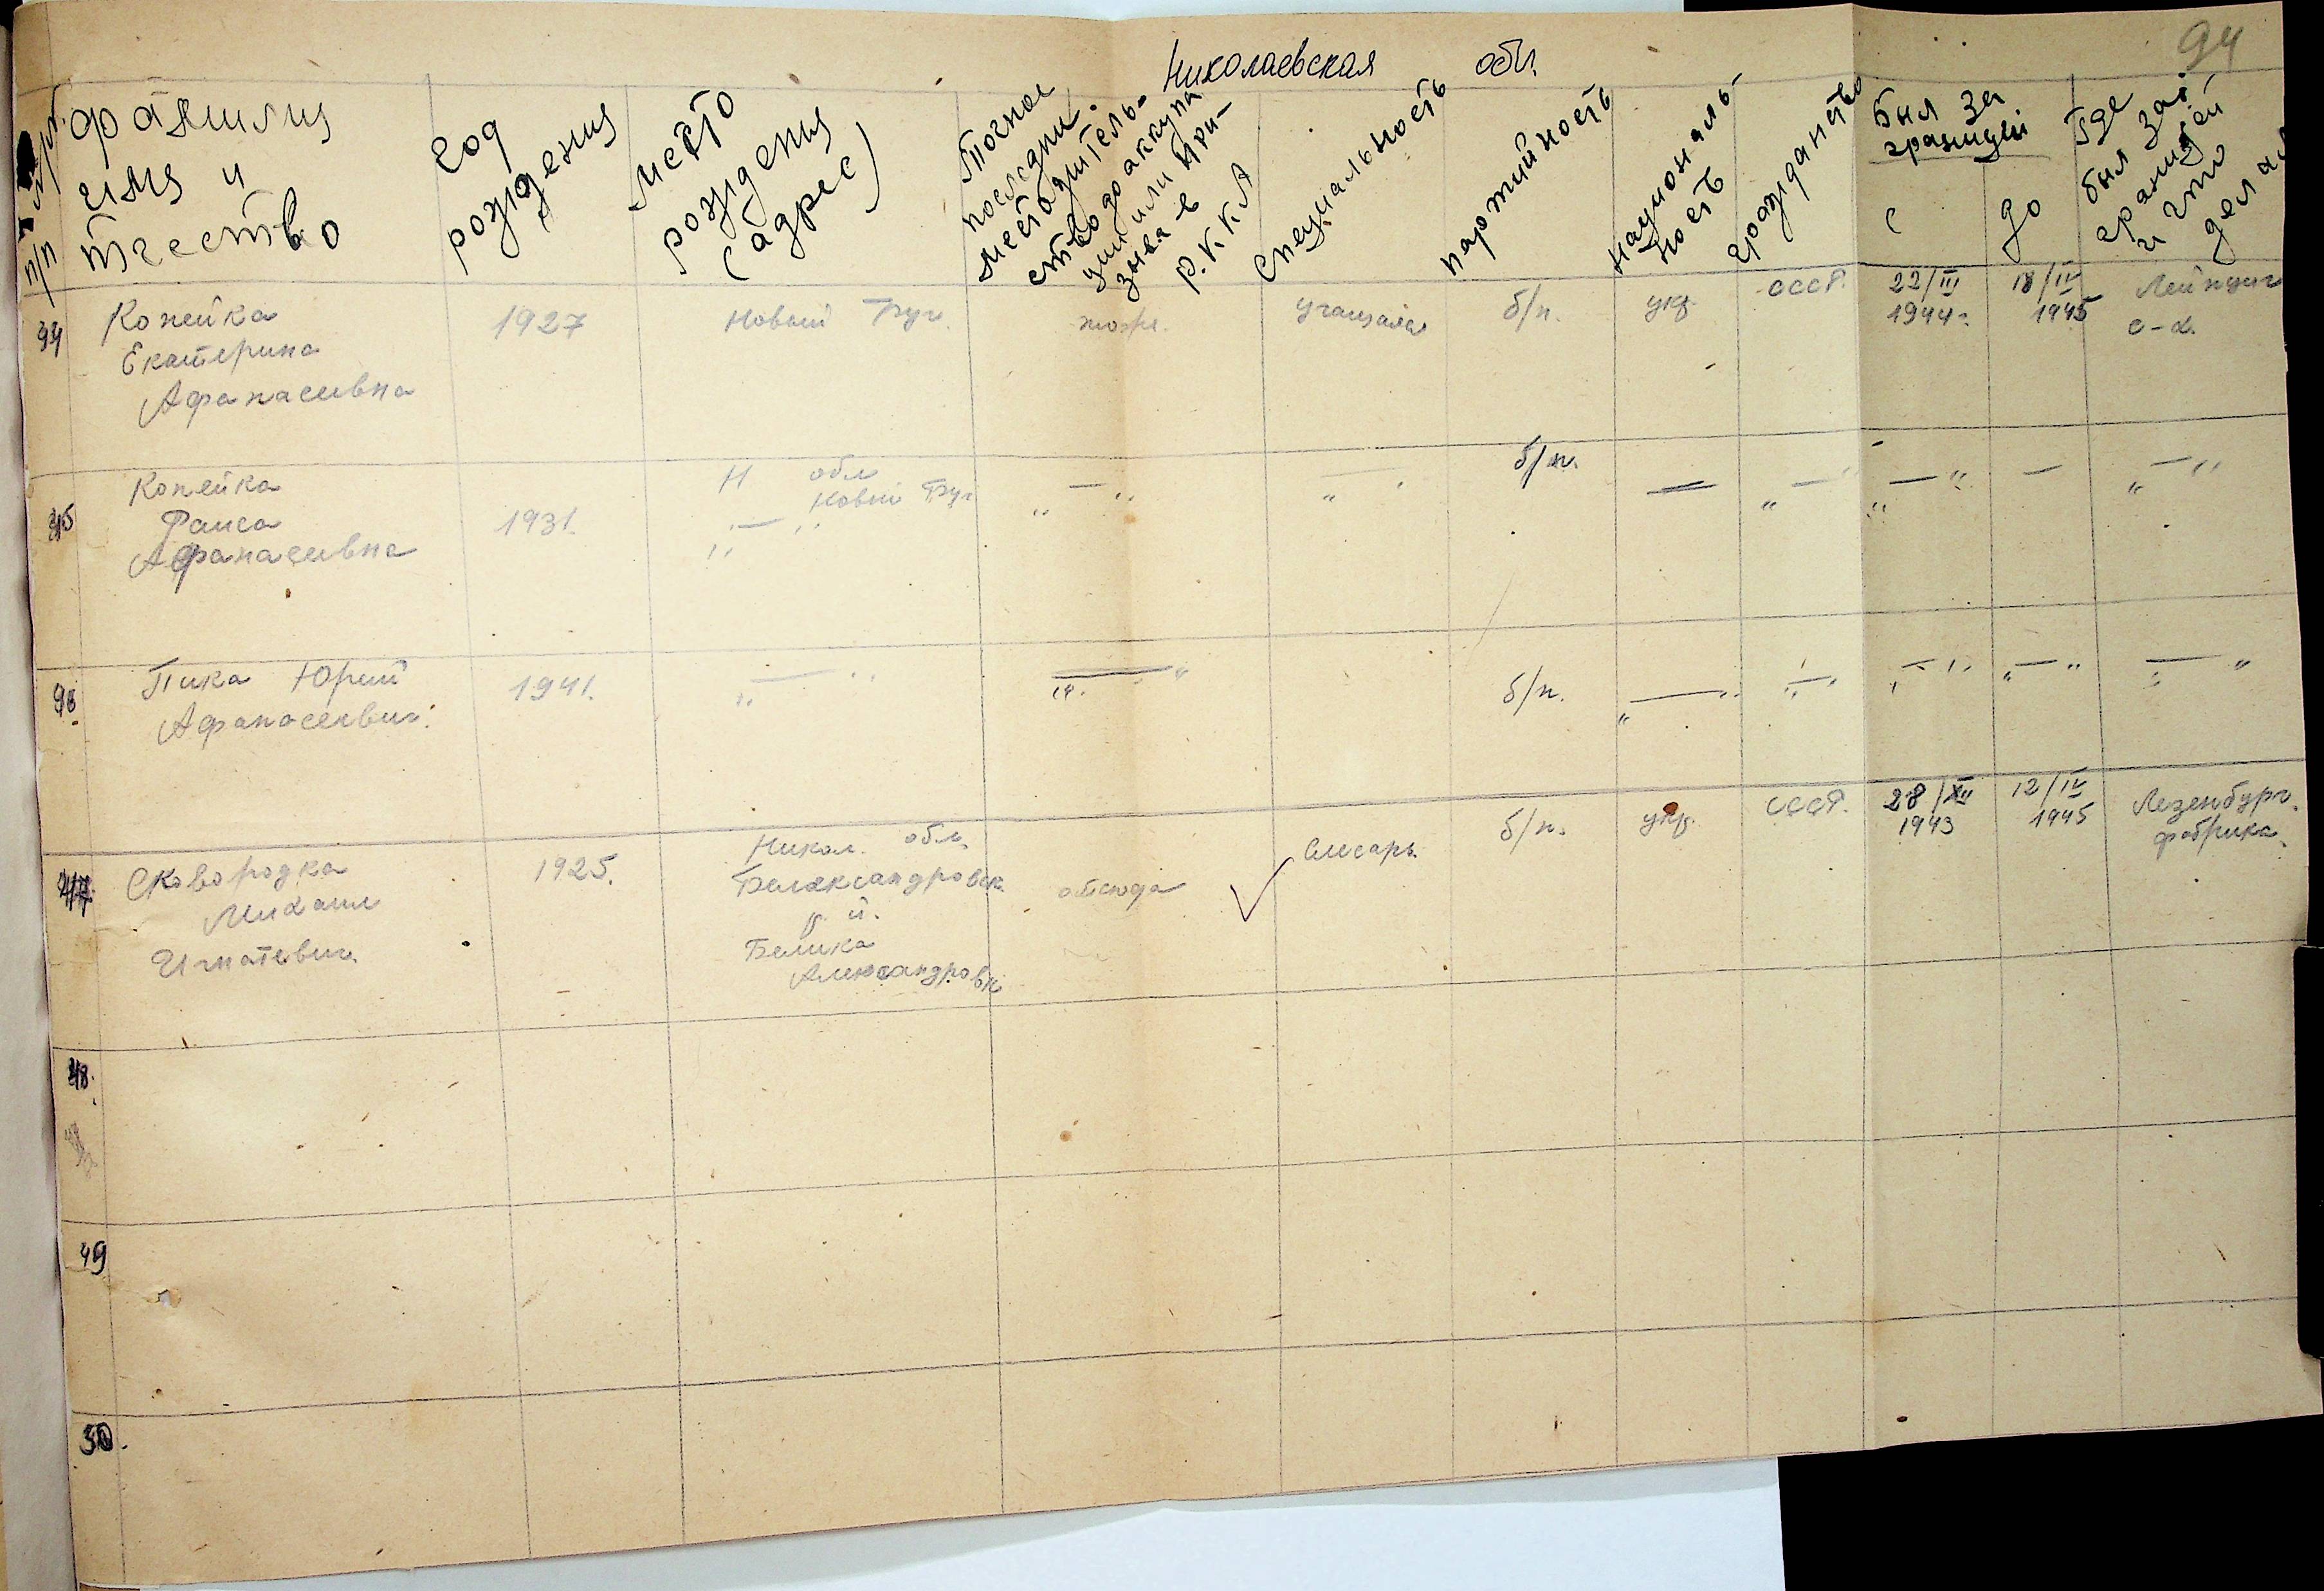 94
Николаевская обл.
№ п/п
фамилия
имя и
тчество
год
рождения
место
рождения
(адрес)
Точное
последни.
местожитель-
ство до аккупа
ции или при-
зыва в
Р.К.К.А
специальность
партийность
националь-
ность
гражданство
Был за
границей
с
до
Где
был за
границей
и что
делал
44
Копейка
Екатерина
Афанасивна
1927
Новый Буг.
тоже.
учащаяся
б/п.
укр.
СССР.
22/III
1944г.
18/IV
1945
Лейпциг
с-х.
45
Копейка
Раиса
Афанасивна
1931.
Н обл
Новый Буг
„ — „
„ — „
„ — „
б/п.
—
„ — „
„ — „
—
„ — „
46
Пика Юрий
Афанасевич.
1941.
„ — „
„ — „
б/п.
„ — „
„ — „
„ — „
„ — „
„ — „
47
Сковородка
Михаил
Игнатевич.
1925.
Никол. обл.
Белександровск.
р. й.
Белика
Александровк
отсюда
Слесарь.
б/п.
укр.
СССР.
28/XII
1943
12/IV
1945
Лезенбург.
фабрика.
48.
49
50.